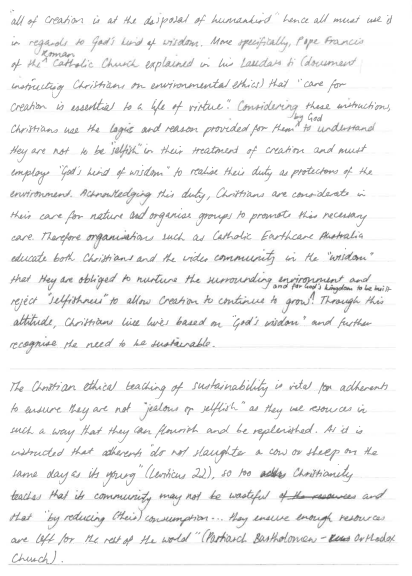 all of creation is at the disposal of humankind" hence all must use'd
in regards to God's kind of wisdom. More specifically, Pope Francis
of the Roman Catholic Church explained in his Laudato Si (document
instructing Christians on environmental ethics) that "care for
creation is essential to a life of virtue". Considering these instructions,
Christians use the logic and reason provided for them by God to understand
they are not to be "selfish" in their treatment of creation and must
employ "God's kind of wisdom" to realise their duty as protectors of the
environment. Acknowledging this duty, Christians are considerate in
their care for nature and organise groups to promote this necessary
care. Therefore organisations such as Catholic Earthcare Australia
educate both Christians and the wider community in the "wisdom"
that they are obliged to nurture the surrounding environment and
reject "selfishness" to allow creation to continue to grow and for God's kingdom to be built. Through this
attitude, Christians live lives based on "God's wisdom" and further
recognise the need to be sustainable.
The Christian ethical teaching of sustainability is vital for adherents
to ensure they are not "jealous or selfish" as they use resources in
such a way that they can flourish and be replenished. As it is
instructed that adherents "do not slaughter a cow or sheep on the
same day as its young" (Leviticus 22), so too Christianity
teaches that its community may not be wasteful of the resources and
that "by reducing (their) consumption... they ensure enough resources
are left for the rest of the world" (Patriarch Bartholomew - Orthodox
Church).